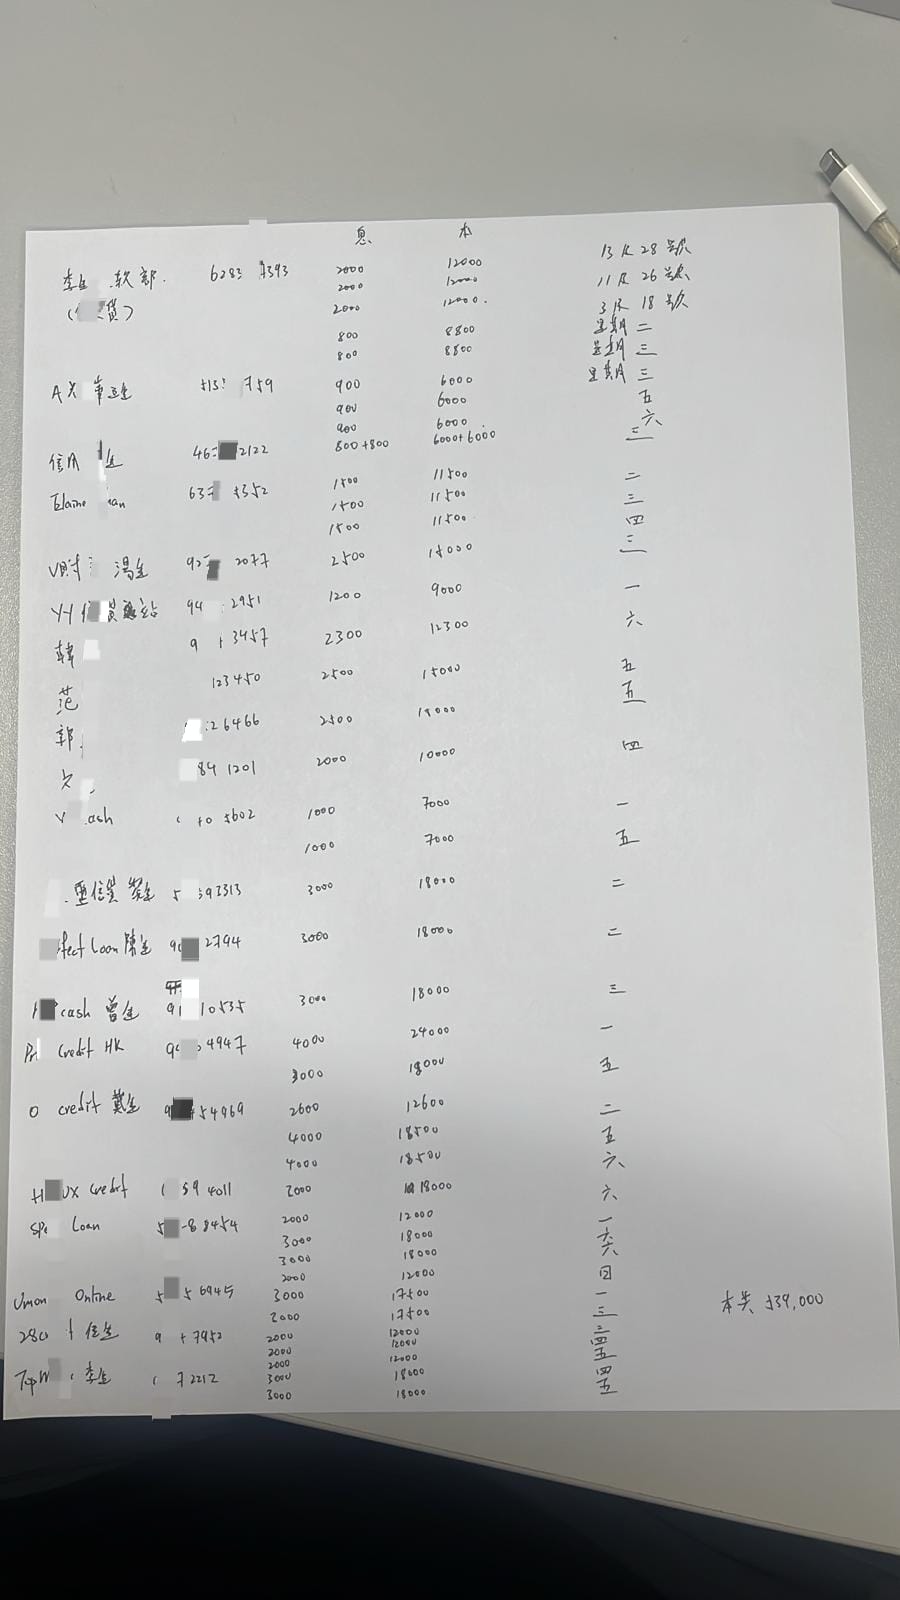 息 本
李生 軟部. 6283 393 2000 12000 13及28號
2000 12000 11及26號
( 貸) 2000 12000. 3及18號
800 8800 星期二
800 8800 星期三
A 生 513 759 900 6000 星期三
900 6000 五
900 6000 六
信用 生 46 2122 800+800 6000+6000 三
Elaine an 63 352 1500 11500 二
1500 11500 三
1500 11500 四
V財 馮生 92 2077 2500 15000 三
YY 貸 站 94 2951 1200 9000 一
韓 9 3457 2300 12300 六
范 123450 2500 15000 五
郭 26466 2500 15000 五
841201 2000 10000 四
Y ash 5602 1000 7000 一
1000 7000 五
信 生 5 93313 3000 18000 二
fect Loan 陳生 9 2794 3000 18000 二
cash 曾生 91 10535 3000 18000 三
Credit HK 9 4947 4000 24000 一
3000 18000 五
O credit 戴生 9 54969 2600 12600 二
4000 18500 五
4000 18500 六
H UX Credit 59 4011 2000 18000 六
Spe Loan 5 -88454 2000 12000 一
3000 18000 六
3000 18000 六
2000 12000 日
Union Online 5 56945 3000 17500 一
3000 17500 三
28C 任生 9 7952 2000 12000 二
2000 12000 四
2000 12000 五
Top 李生 72212 3000 18000 四
3000 18000 五
本共 539,000